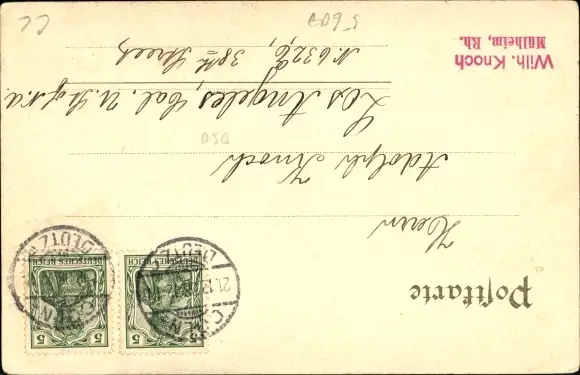 Postkarte
Herrn
Adolph Knoch
Los Angeles, Cal. U. St. of n.a.
N. 632, E, 38th Street
Wilh. Knoch
Mülheim, Rh.
DEUTSCHES REICH
5
5
DEUTSCHES REICH
5
5
DEUTZ
DEUTZ